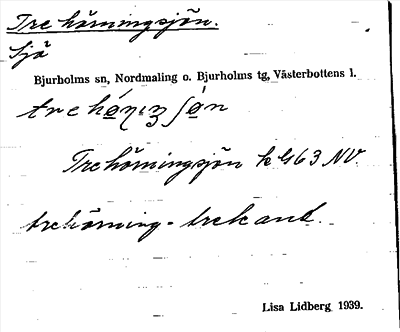 Trehörningsjön.
Sjö
Bjurholms sn, Nordmaling o. Bjurholms tg, Västerbottens l.
Trehörningsjön k 463 NV.
trehörning = trekant.
Lisa Lidberg 1939.